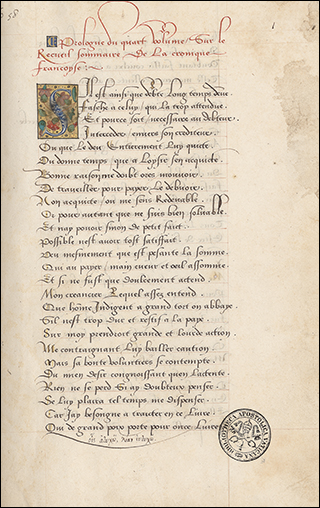 58
Prologue du quart volume / Sur le
Recueil sommaire De La cronique
francoyse :
Sil est ainsi que debte Long temps deue
Fasche a celuy / qui la trop attendue
Et pource soit / necessaire au debteur
Interceder / envers son crediteur
Ou que Le deu Entierement Luy quicte
Ou donne temps / que a Loysir sen acquicte
Bonne raison me doibt ores mouvoir
De travailler pour payer Le debvoir
Non acquicte / ou me sens Redevable
Or pour autant que ne suis bien solvable
Et nay povoir sinon de petit faict
Possible nest avoir tost satisfaict
Deu mesmement que est pesante La somme
Qui au payer / main cueur et oeil assomme
Et si ne fust que doulcement actend
Mon creancier Lequel assez entend
Que homs Indigent a grand tort on abbaye
Sil nest trop dur et restif a la paye
Sur moy prendroit grande et lourde action
Me contraignant Luy bailler caution
Mais sa bonte voluntiers se contempte
Du mien desir congnoissant quen Lactente
Rien ne se perd Si ay doubteux penser
De Luy plaira tel temps me dispenser
Car Jay besongne a traicter en ce Livre
Qui de grand poix porte pour once Livre
BIBLIOTHECA APOSTOLICA VATICANA